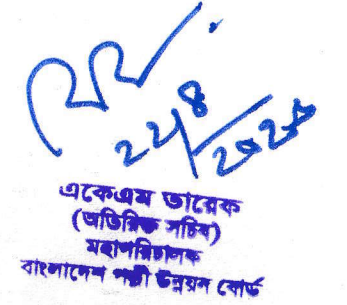 ২২/৪/২০২৪
একেএম তারেক
(অতিরিক্ত সচিব)
মহাপরিচালক
বাংলাদেশ পল্লী উন্নয়ন বোর্ড